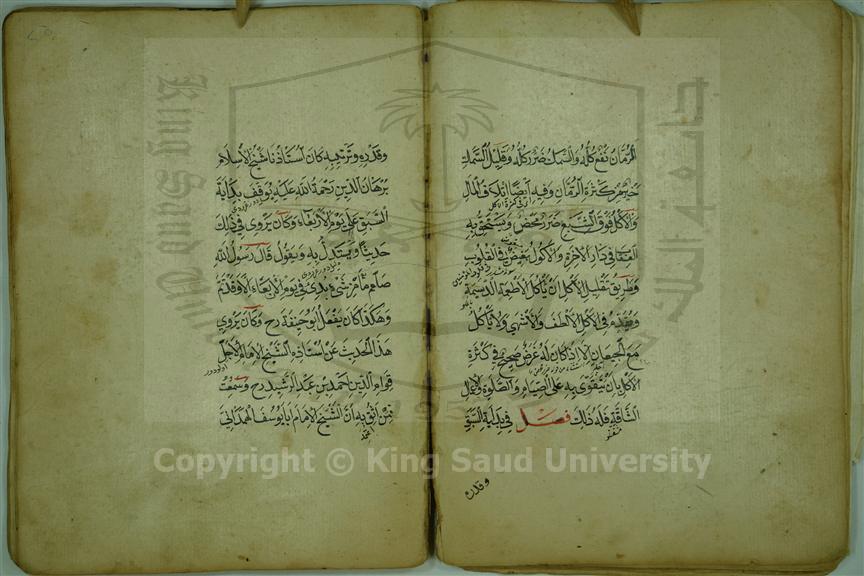 الرمان نفع كله والسمك ضرر كله وقليل السمك
خير من كثرة الرمان وفيه ايضا اتلاف المال
والاكل فوق الشبع ضرر محض ويستحق به
العقاب في دار الآخرة والاكول بغيض في القلوب
وطريق تقليل الاكل ان يأكل الاطعمة الدسمة
ويقدم في الاكل الالطف والاشهى ولا يأكل
مع الجيعان الا اذا كان له غرض صحيح في كثرة
الاكل بان يتقوى به على الصيام والصلوة والاعمال
الشاقة فله ذلك فصل في بداية السبق
وقدره
وقدره وترتيبه كان استاذنا شيخ الاسلام
برهان الدين رحمة الله عليه يوقف بداية
السبق على يوم الاربعاء وكان يروى في ذلك
حديثا ويستدل به ويقول قال رسول الله
صلعم ما من شئ بدئ في يوم الاربعاء الا وقد تم
وهكذا كان يفعل ابو حنيفة رح وكان يروي
هذا الحديث عن استاذه الشيخ الامام الاجل
قوام الدين احمد بن عبد الرشيد رح وسمعت
ممن اثق به ان الشيخ الامام ابا يوسف الهمداني
King Saud University
جامعة الملك سعود
1957
Copyright © King Saud University